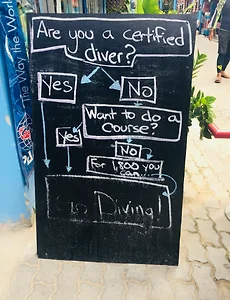 The Way the World
Are you a certified
diver?
Yes
No
Want to do a
Course?
Yes
No
For 1,800 you
can....
Diving!